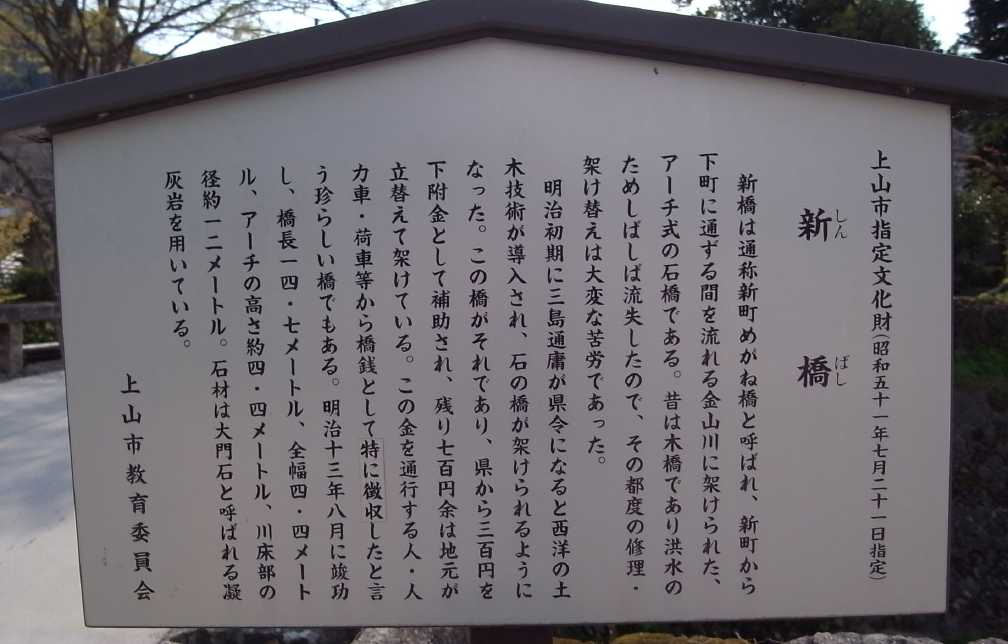 上山市指定文化財(昭和五十一年七月二十一日指定)
新橋
しんばし
新橋は通称新町めがね橋と呼ばれ、新町から
下町に通ずる間を流れる金山川に架けられた、
アーチ式の石橋である。昔は木橋であり洪水の
ためしばしば流失したので、その都度の修理・
架け替えは大変な苦労であった。
明治初期に三島通庸が県令になると西洋の土
木技術が導入され、石の橋が架けられるように
なった。この橋がそれであり、県から三百円を
下附金として補助され、残り七百円余は地元が
立替えて架けている。この金を通行する人・人
力車・荷車等から橋銭として特に徴収したと言
う珍らしい橋でもある。明治十三年八月に竣功
し、橋長一四・七メートル、全幅四・四メート
ル、アーチの高さ約四・四メートル、川床部の
径約一二メートル。石材は大門石と呼ばれる凝
灰岩を用いている。
上山市教育委員会